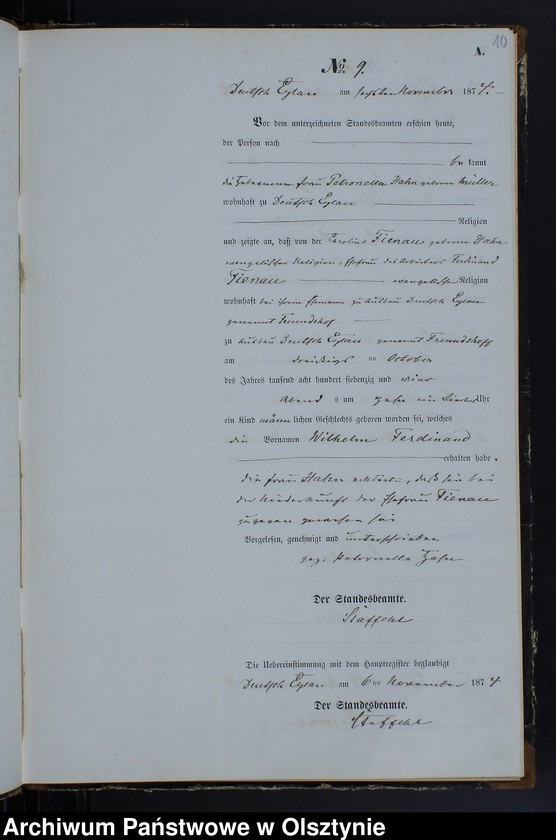 10
A.
No. 9.
Deutsch Eylau am sechsten November 1874.
Vor dem unterzeichneten Standesbeamten erschien heute,
der Person nach
bekannt
die Hebeamme Frau Petronella Hahn geborene Müller
wohnhaft zu Deutsch Eylau
Religion
und zeigte an, daß von der Caroline Fienau geborene Hahn
evangelischer Religion, Ehefrau des Arbeiters Ferdinand
Fienau evangelischer Religion
wohnhaft bei ihrem Ehemann zu Deutsch Eylau
genannt Freundshof
zu Deutsch Eylau genannt Freundshoff
am dreißigsten October
des Jahres tausend acht hundert siebenzig und vier
Abends um zehn ein Uhr
ein Kind männlichen Geschlechts geboren worden sei, welches
die Vornamen Wilhelm Ferdinand
erhalten habe.
die Frau Hahn erklärte, daß sie bei
der Niederkunft der Ehefrau Fienau
zugegen gewesen sei
Vorgelesen, genehmigt und unterschrieben
gez. Petronella Hahn
Der Standesbeamte.
Staffehl
Die Uebereinstimmung mit dem Hauptregister beglaubigt
Deutsch Eylau am 6ten November 1874
Der Standesbeamte.
Staffehl
Archiwum Państwowe w Olsztynie